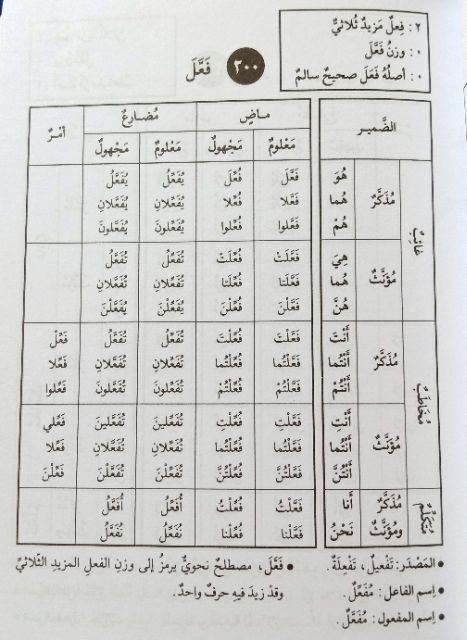 ٢ : فِعلٌ مَزيدٌ ثُلاثيٌّ
٠ : وزنُ فَعَّلَ
٠ : أصلُهُ فَعَلَ صحيحٌ سالمٌ
٢٠٠ فَعَّلَ
الضَّمير ماضٍ مُضارعٌ أمْرٌ
مَعْلومٌ مَجْهولٌ مَعْلومٌ مَجْهولٌ
غائِبٌ
مُذَكَّرٌ
هُوَ فَعَّلَ فُعِّلَ يُفَعِّلُ يُفَعَّلُ
هُما فَعَّلا فُعِّلا يُفَعِّلانِ يُفَعَّلانِ
هُمْ فَعَّلوا فُعِّلوا يُفَعِّلونَ يُفَعَّلونَ
مُؤنَّثٌ
هِيَ فَعَّلَتْ فُعِّلَتْ تُفَعِّلُ تُفَعَّلُ
هُما فَعَّلَتا فُعِّلَتا تُفَعِّلانِ تُفَعَّلانِ
هُنَّ فَعَّلْنَ فُعِّلْنَ يُفَعِّلْنَ يُفَعَّلْنَ
مُخاطَبٌ
مُذَكَّرٌ
أَنْتَ فَعَّلْتَ فُعِّلْتَ تُفَعِّلُ تُفَعَّلُ فَعِّلْ
أَنْتُما فَعَّلْتُما فُعِّلْتُما تُفَعِّلانِ تُفَعَّلانِ فَعِّلا
أَنْتُمْ فَعَّلْتُمْ فُعِّلْتُمْ تُفَعِّلونَ تُفَعَّلونَ فَعِّلوا
مُؤنَّثٌ
أَنْتِ فَعَّلْتِ فُعِّلْتِ تُفَعِّلينَ تُفَعَّلينَ فَعِّلي
أَنْتُما فَعَّلْتُما فُعِّلْتُما تُفَعِّلانِ تُفَعَّلانِ فَعِّلا
أَنْتُنَّ فَعَّلْتُنَّ فُعِّلْتُنَّ تُفَعِّلْنَ تُفَعَّلْنَ فَعِّلْنَ
مُتَكَلِّمٌ
مُذَكَّرٌ أَنا فَعَّلْتُ فُعِّلْتُ أُفَعِّلُ أُفَعَّلُ
ومُؤنَّثٌ نَحْنُ فَعَّلْنا فُعِّلْنا نُفَعِّلُ نُفَعَّلُ
• المَصْدَر: تَفْعيلٌ، تَفْعِلَةٌ.
• اِسم الفاعل: مُفَعِّلٌ.
• اِسم المفعول: مُفَعَّلٌ.
• فَعَّلَ، مصطلحٌ نحويٌّ يرمزُ إلى وزنِ الفعلِ المزيدِ الثّلاثيِّ
وقدْ زيدَ فيهِ حرفٌ واحدٌ.